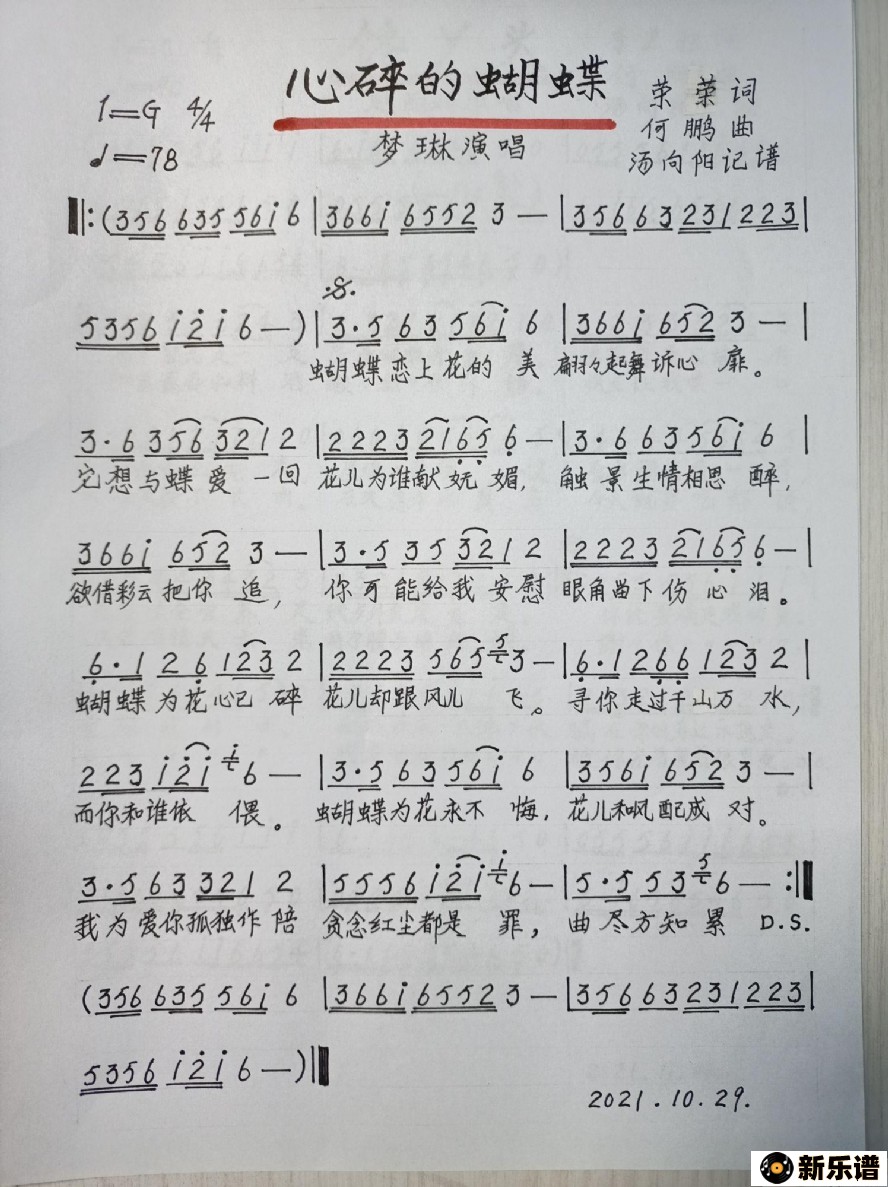 心碎的蝴蝶
1=G 4/4
♩=78
梦琳演唱
荣荣词
何鹏曲
汤向阳记谱
‖:(356 635 561̇ 6 |3661̇ 6552 3 — |3566 3 231 223|
5356 1̇2̇1̇ 6 —)|3·5 63 561̇ 6 |3661̇ 652 3 — |
蝴蝶恋上花的 美 翩翩起舞诉心 扉。
3·6 356 321 2 |2223 216̣5̣ 6̣ — |3·6 63561̇ 6 |
它想与蝶爱一回 花儿为谁献妩媚, 触景生情相思 醉,
3661̇ 652 3 — |3·5 35 321 2 |2223 216̣5̣ 6̣ — |
欲借彩云把你 追, 你可能给我安慰 眼角曲下伤心泪。
6̣·1 26̣ 123 2 |2223 565 5 3 — |6̣·1 26̣6̣ 123 2 |
蝴蝶为花心已 碎 花儿却跟风儿 飞。 寻你走过千山万 水,
223 1̇2̇1̇ 1̇ 6 — |3·5 63561̇ 6 |3561̇ 652 3 — |
而你和谁依 偎。 蝴蝶为花永不 悔, 花儿和风配成 对。
3·563 321 2 |5556 1̇2̇1̇ 1̇ 6 — |5·5 53 5 6 — :‖
我为爱你孤独作陪 贪念红尘都是 罪, 曲尽方知累 D.S.
(356 635 561̇ 6 |3661̇ 6552 3 — |3566 3 231 223|
5356 1̇2̇1̇ 6 —)‖
2021.10.29.
新乐谱